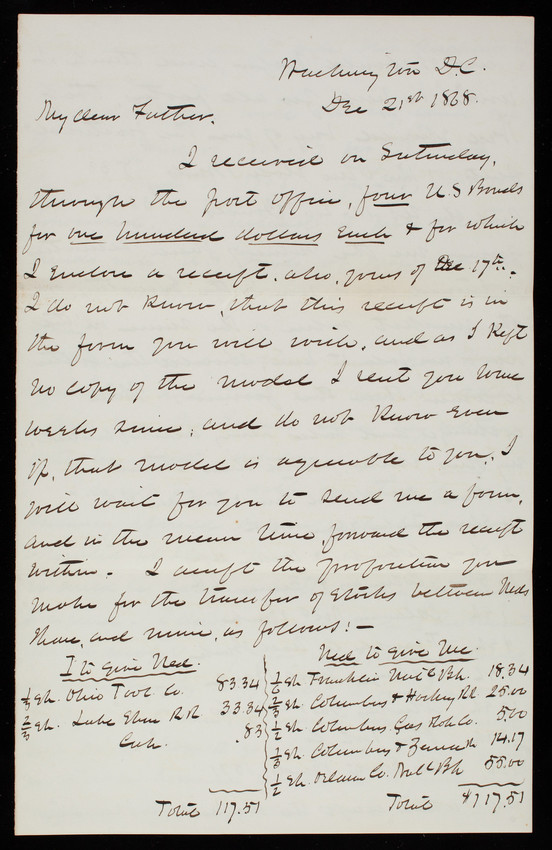 Washington D.C.
Dec 21st 1868.
My dear Father,
I received on Saturday,
through the post office, four U.S Bonds
for one hundred dollars each & for which
I enclose a receipt. also, yours of Dec 17th.
I do not know, that this receipt is in
the form you will wish, and as I kept
no copy of the model I sent you some
weeks since, and do not know even
if, that model is agreeable to you, I
will wait for you to send me a form,
and in the mean time, forward the receipt
within. I accept the proposition you
make for the transfer of stocks between Neds
share, and mine, as follows:—
I to give Ned.
1/3 Sh. Ohio Tool Co. 83.34
2/3 Sh. Lake Shore R R 33.34
Cash. .83
Total 117.51
Ned to give Me.
Sh Franklin Natl Bk. 18.34
Sh. Columbus & Hocking RR 25.00
1/2 Sh Columbus Gas Co. 5.00
1/3 Sh. Columbus & Xenia RR 14.17
1/2 Sh. Delaware Co. Natl Bk 55.00
Total $117.51